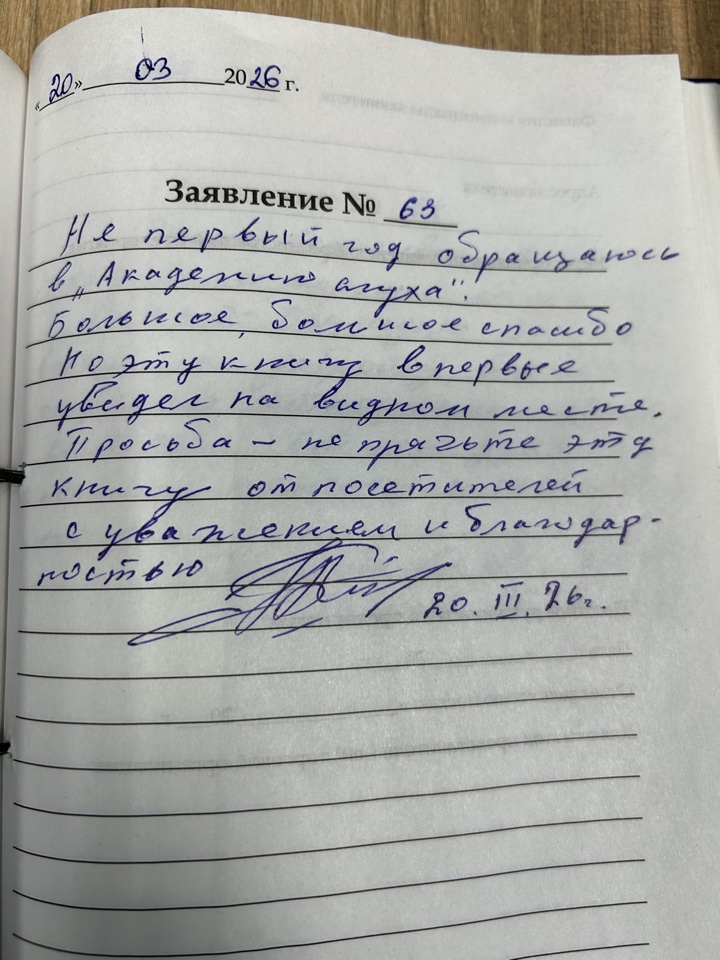 «20» 03 2026 г.
Заявление № 63
Не первый год обращаюсь
в „Академию слуха".
Большое, большое спасибо
Но эту книгу впервые
увидел на видном месте.
Просьба – не прячьте эту
книгу от посетителей
с уважением и благодар-
ностью
20. III. 26г.